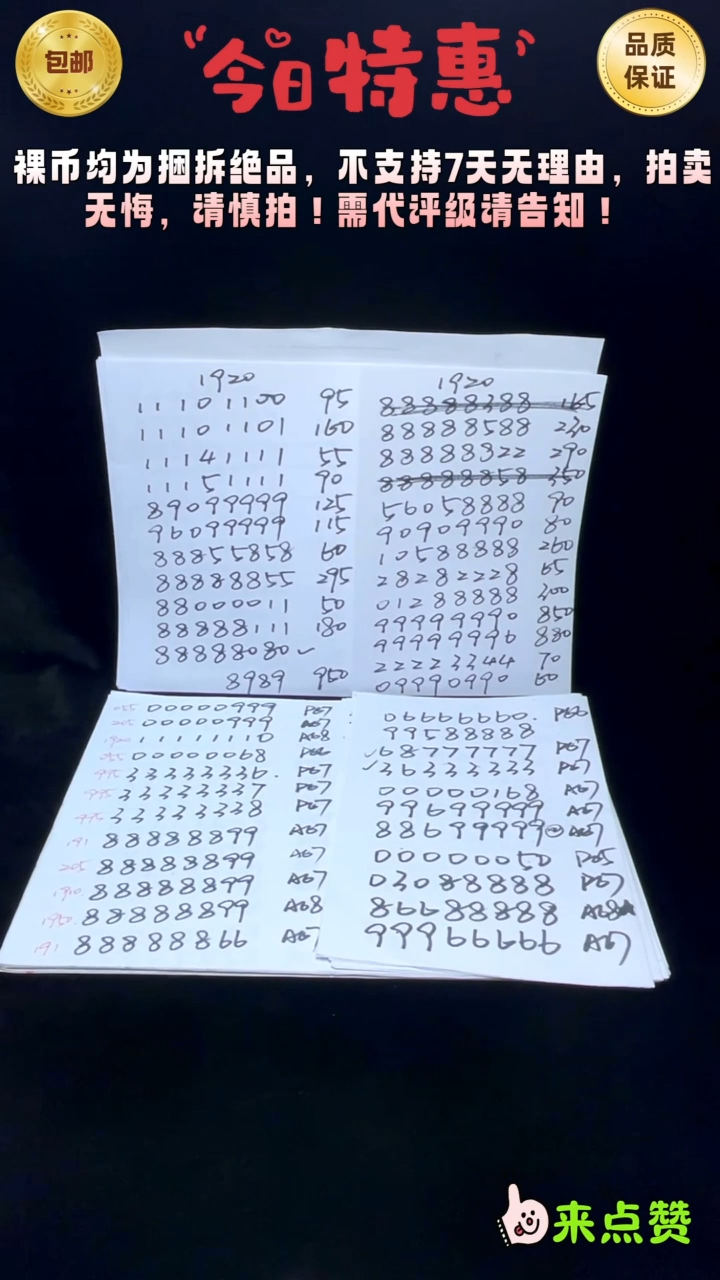 包邮
"今日特惠"
品质
保证
裸币均为捆拆绝品，不支持7天无理由，拍卖
无悔，请慎拍！需代评级请告知！
1920
11101100 95
11101101 160
11141111 55
11151111 90
89099999 125
96099999 115
88855858 60
88888855 295
88000011 50
88888111 180
88888080 ✓
8989 950
1920
88888388 165
88888588 230
88888322 290
88888858 350
56058888 90
90909990 80
10588888 260
28282228 65
01288888 300
99999990 850
99999996 880
22223344 70
09990990 60
255 00000999 P67
205 00000999 A67
1920 11111110 A68
255 00000068 P66
995 33333336. P67
995 33333337 P67
995 33333338 P67
191 88888899 A67
205 88888899 A67
1910 88888899 A67
1960 88888899 A68
191 88888866 A67
06666660. P66
99588888
✓68777777 P67
✓36333333 P67
00000168 A67
99699999 A67
88699999 A67
00000050 P65
03088888 P67
86688888 A68
99966666 A67
来点赞